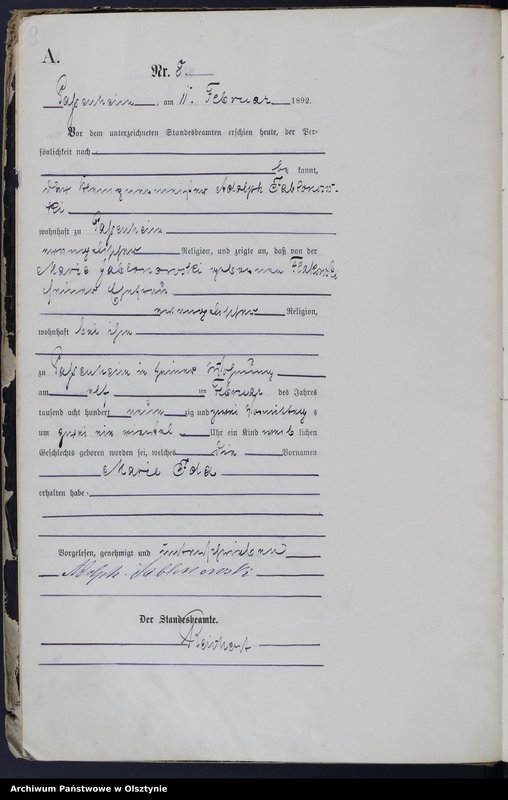 A.
Nr. 8.
Passenheim, am 11. Februar 1892.
Vor dem unterzeichneten Standesbeamten erschien heute, der Per-
sönlichkeit nach
be kannt,
der Klempnermeister Adolph Jablonows-
ki
wohnhaft zu Passenheim
evangelischer Religion, und zeigte an, daß von der
Marie Jablonowski geborenen
seiner Ehefrau
evangelischer Religion,
wohnhaft bei ihm
zu Passenheim in seiner Wohnung
am elf ten Februar des Jahres
tausend acht hundert neun zig und zwei Vormittag s
um zwei ein viertel Uhr ein Kind weib lichen
Geschlechts geboren worden sei, welches die Vornamen
Marie Ida
erhalten habe.
Vorgelesen, genehmigt und unterschrieben
Adolph Jablonowski
Der Standesbeamte.
Archiwum Państwowe w Olsztynie